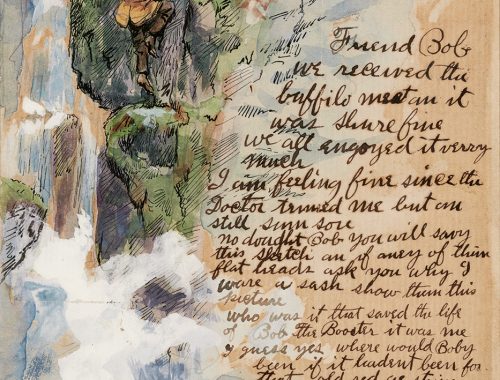 Friend Bob
we received the
buffilo meet an it
was shure fine
we all angoyed it verry
much
I am feeling fine since the
Doctor trimed me but am
still sum sore
no dought Bob you will savy
this sketch an if aney of them
flat heads ask you why I
ware a sash show tham this
picture
who was it that saved the life
of Bob the Booster it was me
I guess yes where would Boby
been if it haden't been for
that old red